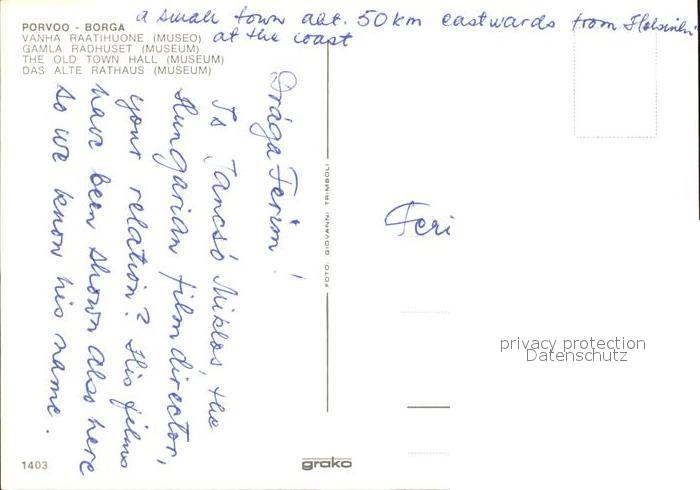 a small town abt. 50 km eastwards from Helsinki
at the coast
PORVOO - BORGA
VANHA RAATIHUONE (MUSEO)
GAMLA RADHUSET (MUSEUM)
THE OLD TOWN HALL (MUSEUM)
DAS ALTE RATHAUS (MUSEUM)
Drága Ferim!
Is Jancsó Miklos, the
Hungarian film director,
your relation? His films
have been shown also here
so we know his name.
FOTO: GIOVANNI TRIMBOLI
Feri
privacy protection
Datenschutz
1403
grako